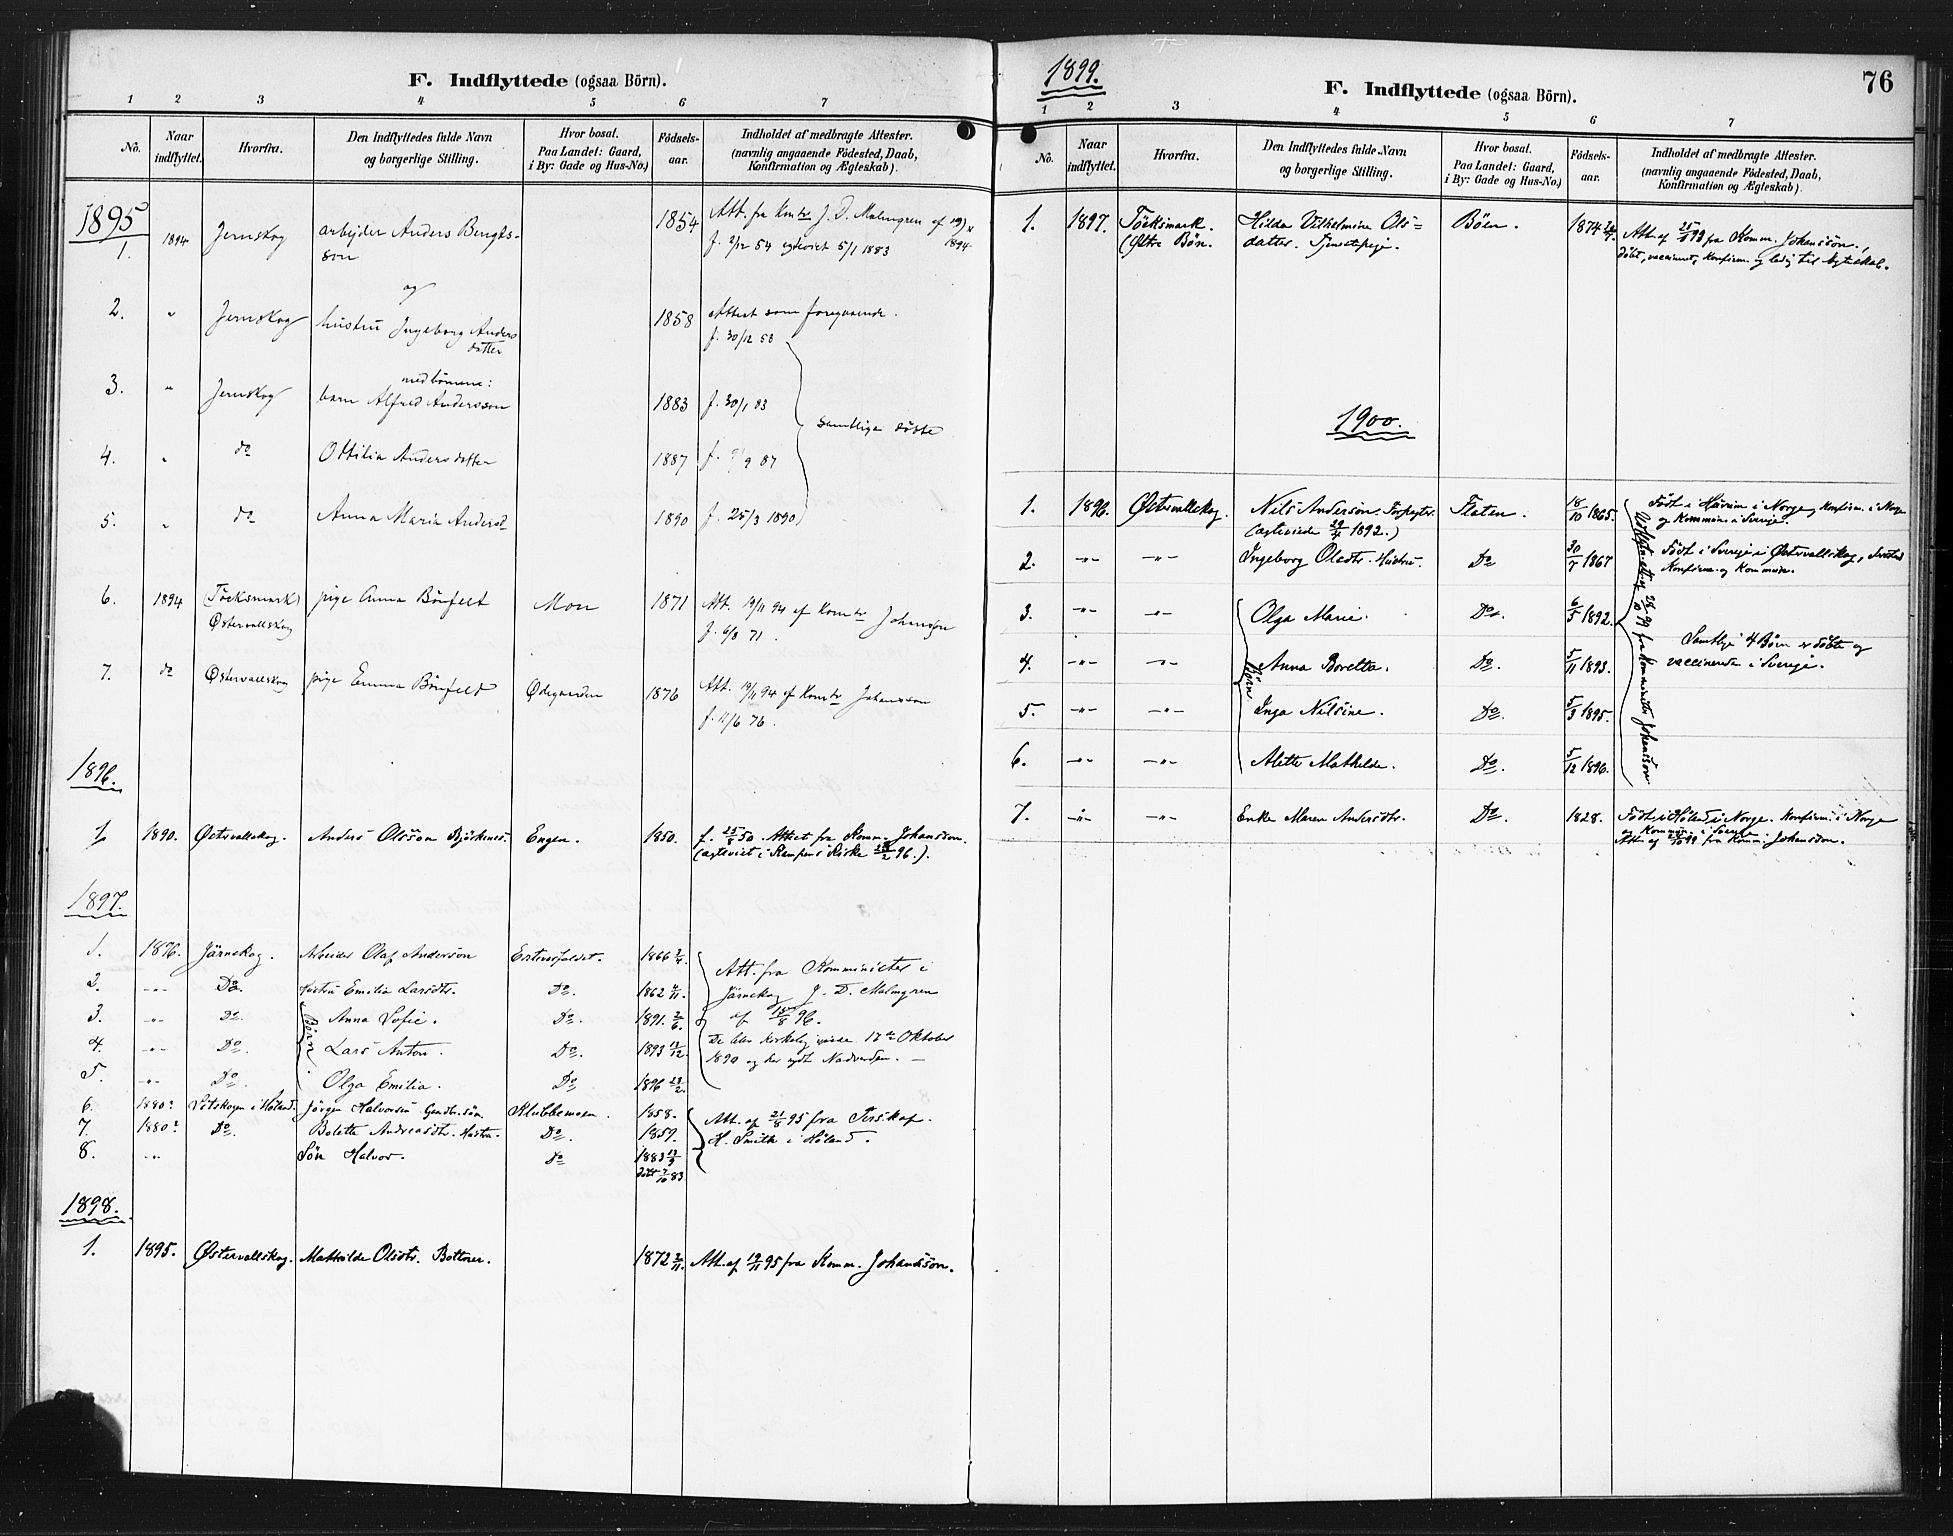 F. Indflyttede (ogsaa Börn).
1 2 3 4 5 6 7
No. Naar indflyttet. Hvorfra. Den Indflyttedes fulde Navn og borgerlige Stilling. Hvor bosat. Paa Landet: Gaard, i By: Gade og Hus-No.) Fødselsaar. Indholdet af medbragte Attester. (navnlig angaaende Födested, Daab, Konfirmation og Ægteskab).
1895
1. 1894 Jernskog arbejder Anders Bengts- 1854 Att. fra J. D. Malmgren af
son f. 2/12 54 5/1 1883 1894
og
2. " Jernskog hustru Ingeborg Anders 1858 Attest som foregaaende.
datter f. 30/12 58
med börnene:
3. " Jernskog barn Alfred Andersson 1883 f. 30/1 83
samtlige döbte
4. " do Ottilia Andersdatter 1887 f. 9 87
5. " do Anna Maria Andersd 1890 f. 25/3 1890
6. 1894 Töcksmark pige Anna Bönfelt Mon 1871 Att. 19/11 94 af Komtr Johansson
Østervallskog f. 6/8 71.
7. do Østervallskog pige Emma Bönfeld Ødegaarden 1876 Att. 19/11 94 af Komtr Johansson
f. 11/6 76.
1896.
1. 1890. Østervallskog. Anders Olsson Björknes. Engen. 1850. f. 25/8 50. Attest fra Komm. Johansson.
2 96.).
1897.
1. 1896. Järnskog. Arbeider Olaf Anderson 1866 2/4. Att. fra Komminister i
2. -"- Do. Hustru Emilia Larsdtr. Do. 1862 4/11. Järnskog J. D. Malmgren
3. -"- Do. Börn Anna Sofie. Do. 1891. 2/6. af 18/8 96.
4. -"- Do. Lars Anton. Do. 1893 13/12. De blev kirkelig viede 12te Oktober
1890 og har nydt Nadverden. —
5. -"- Do. Olga Emilia. Do. 1896 23/2.
6. 1880? Setskogen i Høland. Jörgen Halvorsen Klubbemoen. 1858. Att. af 21/8 95 fra
7. 1880? Do. Bolette Andreasdtr. Hustru. Do. 1859. H. Smith i Høland.
8. -"- Sön Halvor. Do 1883 13/9
döbt 7/10 83
1898.
1. 1895. Østervallskog. Mathilde Olsdtr. Bottner. 1872 2/11. Att. af 19/11 95 fra Komm. Johansson.
1899.
F. Indflyttede (ogsaa Börn).
76
1 2 3 4 5 6 7
No. Naar indflyttet. Hvorfra. Den Indflyttedes fulde Navn og borgerlige Stilling. Hvor bosat. Paa Landet: Gaard, i By: Gade og Hus-No.) Födselsaar. Indholdet af medbragte Attester. (navnlig angaaende Födested, Daab, Konfirmation og Ægteskab).
1. 1897. Töcksmark. Hilda Vilhelmine Ols= Böen. 1874 Att. af 25 93 fra Komm. Johansson.,
(Østre Bön. datter. Tjenestepige. döbt, vaccineret, konfirm. og ledig til Ægteskab.
1900.
1. 1896. Østervallskog. Nils Anderson. Flaten. 18/10 1865. Födt i i Norge, konfirm. i Norge
(ægteviede 1892.) og kommun. i Sverige.
2. -"- -"- Ingeborg Olsdtr. Hustru. Do 30/7 1867 Födt i Sverige i Østervallskog,
Konfirm. og kommun.
3. -"- -"- Börn Olga Marie. Do. 6/5 1892.
Samtlige 4 Börn er döbte og
4. -"- -"- Anna Boretta. Do. 5/11 1893. vaccinerede i Sverige.
5. -"- -"- Inga Nilsine. Do. 5/3 1895.
6. -"- -"- Alette Mathilde. Do. 5/12 1896.
Utflytt. 99 fra Komminister Johansson
7. -"- -"- Enke Maren Andersdtr. Do. 1828. Födt i Høland i Norge. Konfirm. i Norge
og kommun. i Sverige.
Att. af 10 99 fra Komm. Johansson.